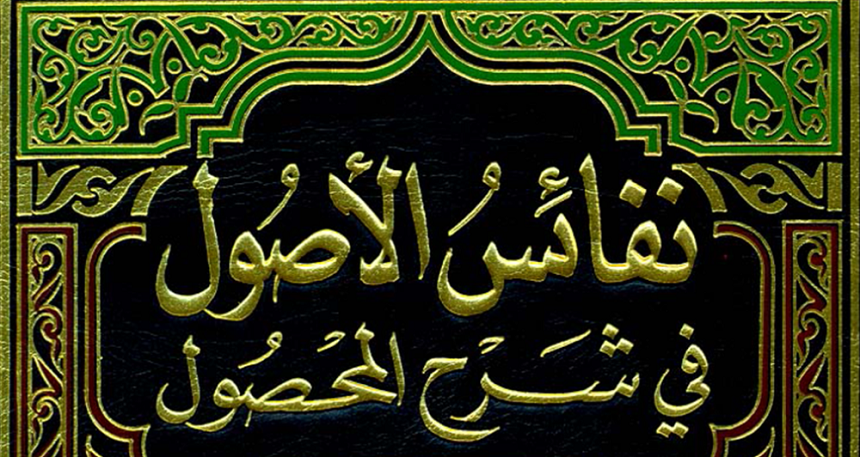 نفائسُ الأصُول
في شَرْح المحْصُول